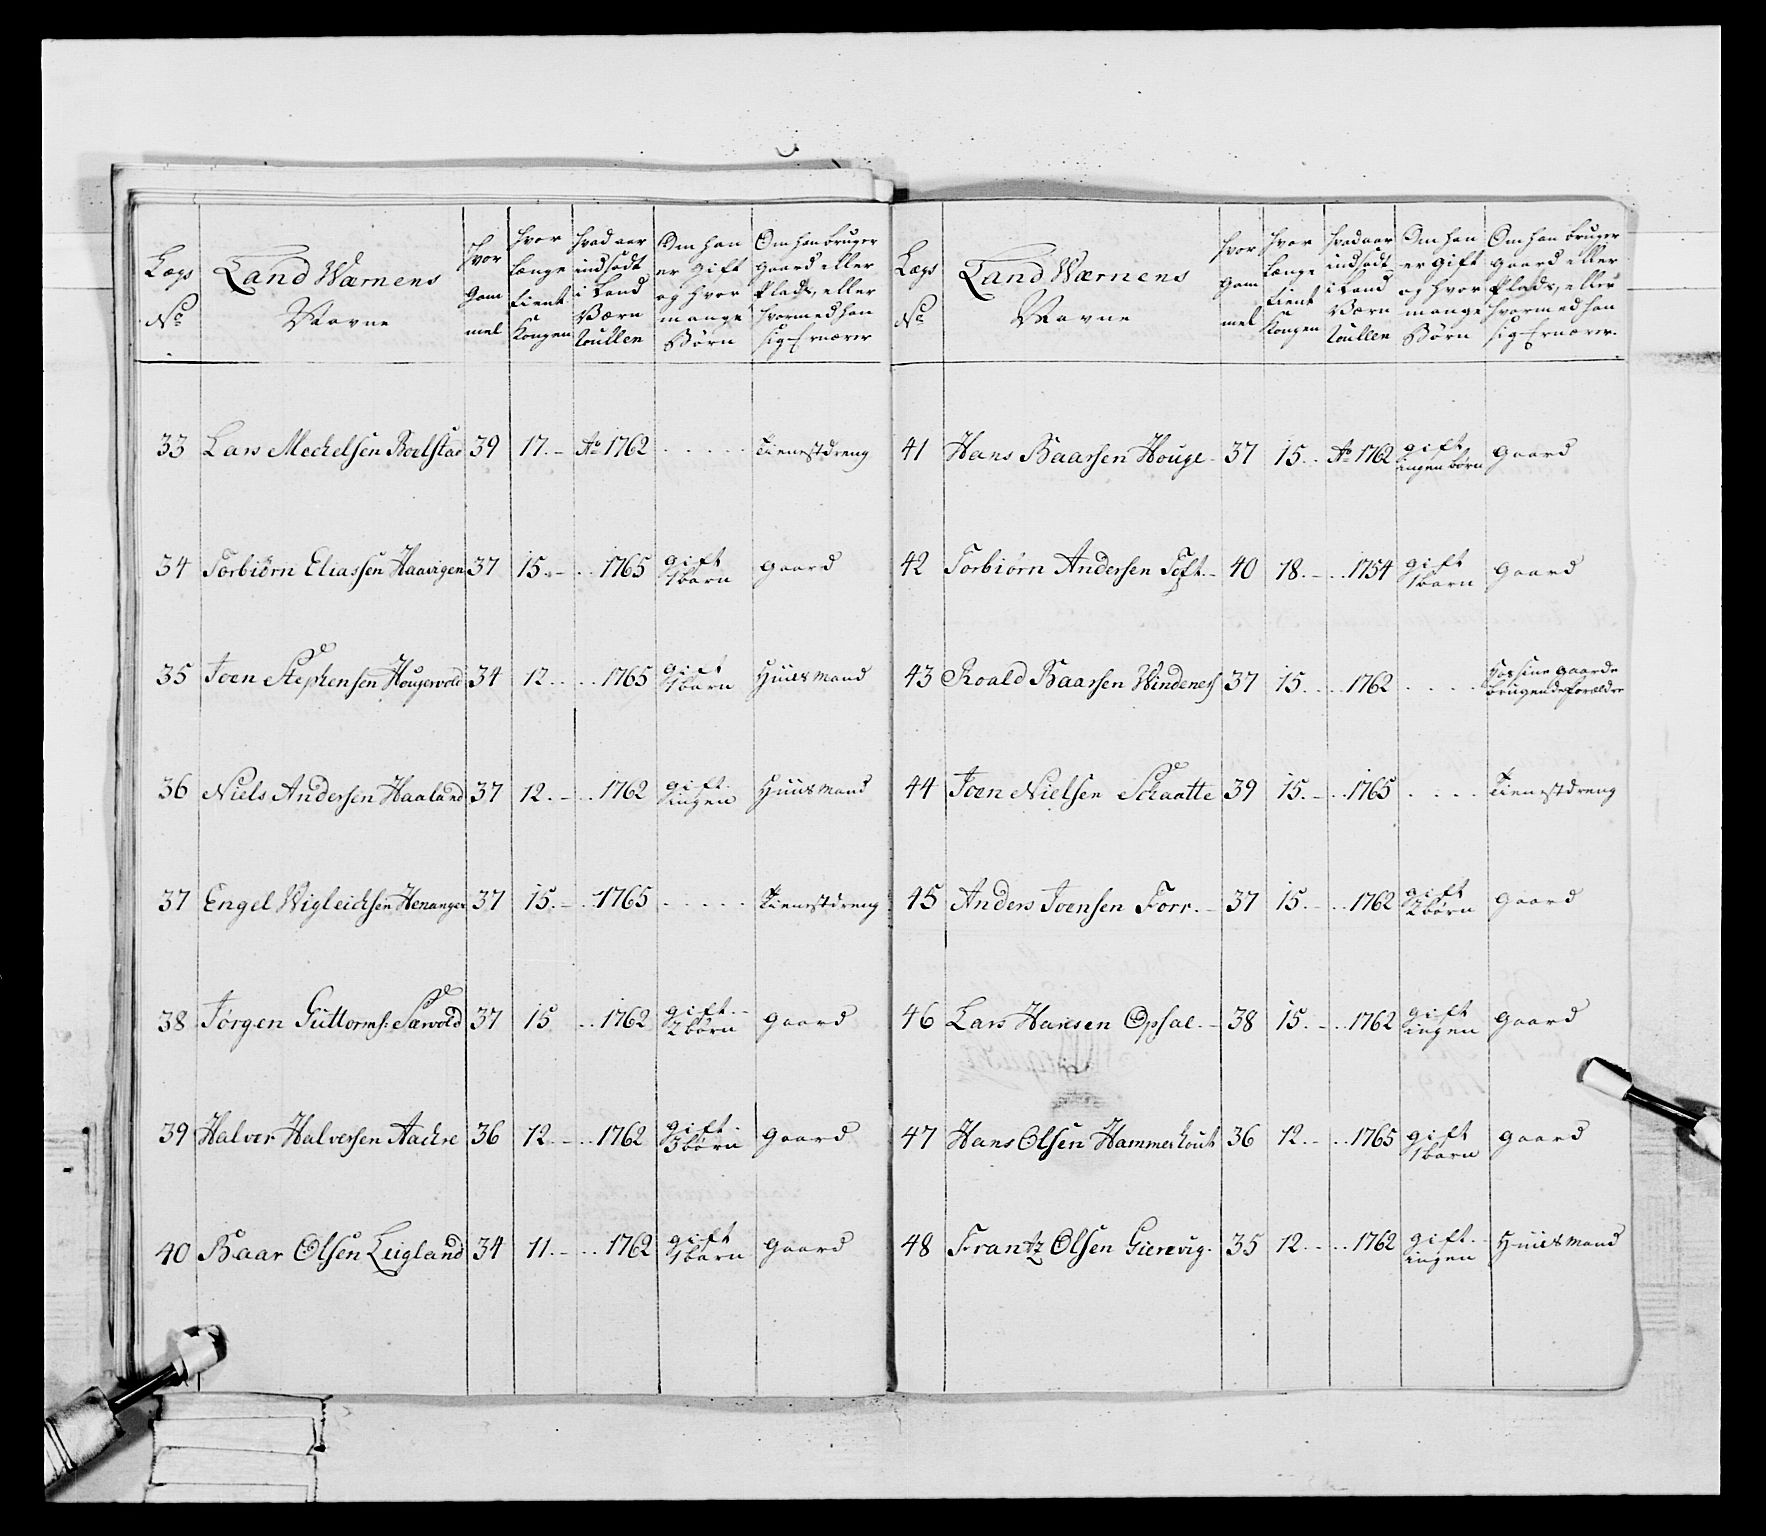 Lægs No | Land Wærnens Navne | Hvor Gammel | Hvor længe tient Kongen | Hvad aar indsadt i Land Værn Roullen | Om han er gift og hvor mange Børn | Om han bruger gaard eller Plads, eller hvormed han sig Ernærer
33 | Lars Mechelsen | 39 | 17. | Ao 1762 | . . . . . | Tienestdreng
34 | Torbiørn Eliassen Haavigen | 37 | 15. | 1765 | gift 1 barn | gaard
35 | Joen Stephensen Hougervold | 34 | 12 | 1765 | gift 1 barn | Huusmand
36 | Niels Andersen Haaland | 37 | 12. | 1762 | gift ingen | Huusmand
37 | Engel Wigleichsen Henanger | 37 | 15. | 1765 | . . . . . | Tienestdreng
38 | Jørgen Guttorms: Sævold | 37 | 15 | 1762 | gift 2 børn | gaard
39 | Halver Halversen Aachre | 36 | 12 | 1762 | gift 3 børn | gaard
40 | Baar Olsen Leigland | 34 | 11. | 1762 | gift 1 barn | gaard
Lægs No | Land Wærnens Navne | Hvor Gammel | Hvor længe tient Kongen | Hvad aar indsadt i Land Værn Roullen | Om han er gift og hvor mange Børn | Om han bruger gaard eller Plads, eller hvormed han sig Ernærer.
41 | Hans Baarsen Houge | 37 | 15 | Ao 1762 | gift ingen børn | gaard
42 | Torbiørn Andersen Toft | 40 | 18. | 1754 | gift 1 barn | gaard
43 | Roald Baarsen Windenes | 37 | 15. | 1762 | . . . . | hos sine gaard brugende forældre
44 | Joen Nielsen Schaatte | 39 | 15. | 1765 | . . . . | Tienestdreng
45 | Anders Joensen Forr. | 37 | 15. | 1762 | gift 2 børn | gaard
46 | Lars Hansen Opsal | 38 | 15. | 1762 | gift ingen | gaard
47 | Hans Olsen Hammerhout | 36 | 12. | 1765 | gift 1 barn | gaard
48 | Frantz Olsen Gierevig. | 35 | 12. | 1762 | gift ingen | Huusmand